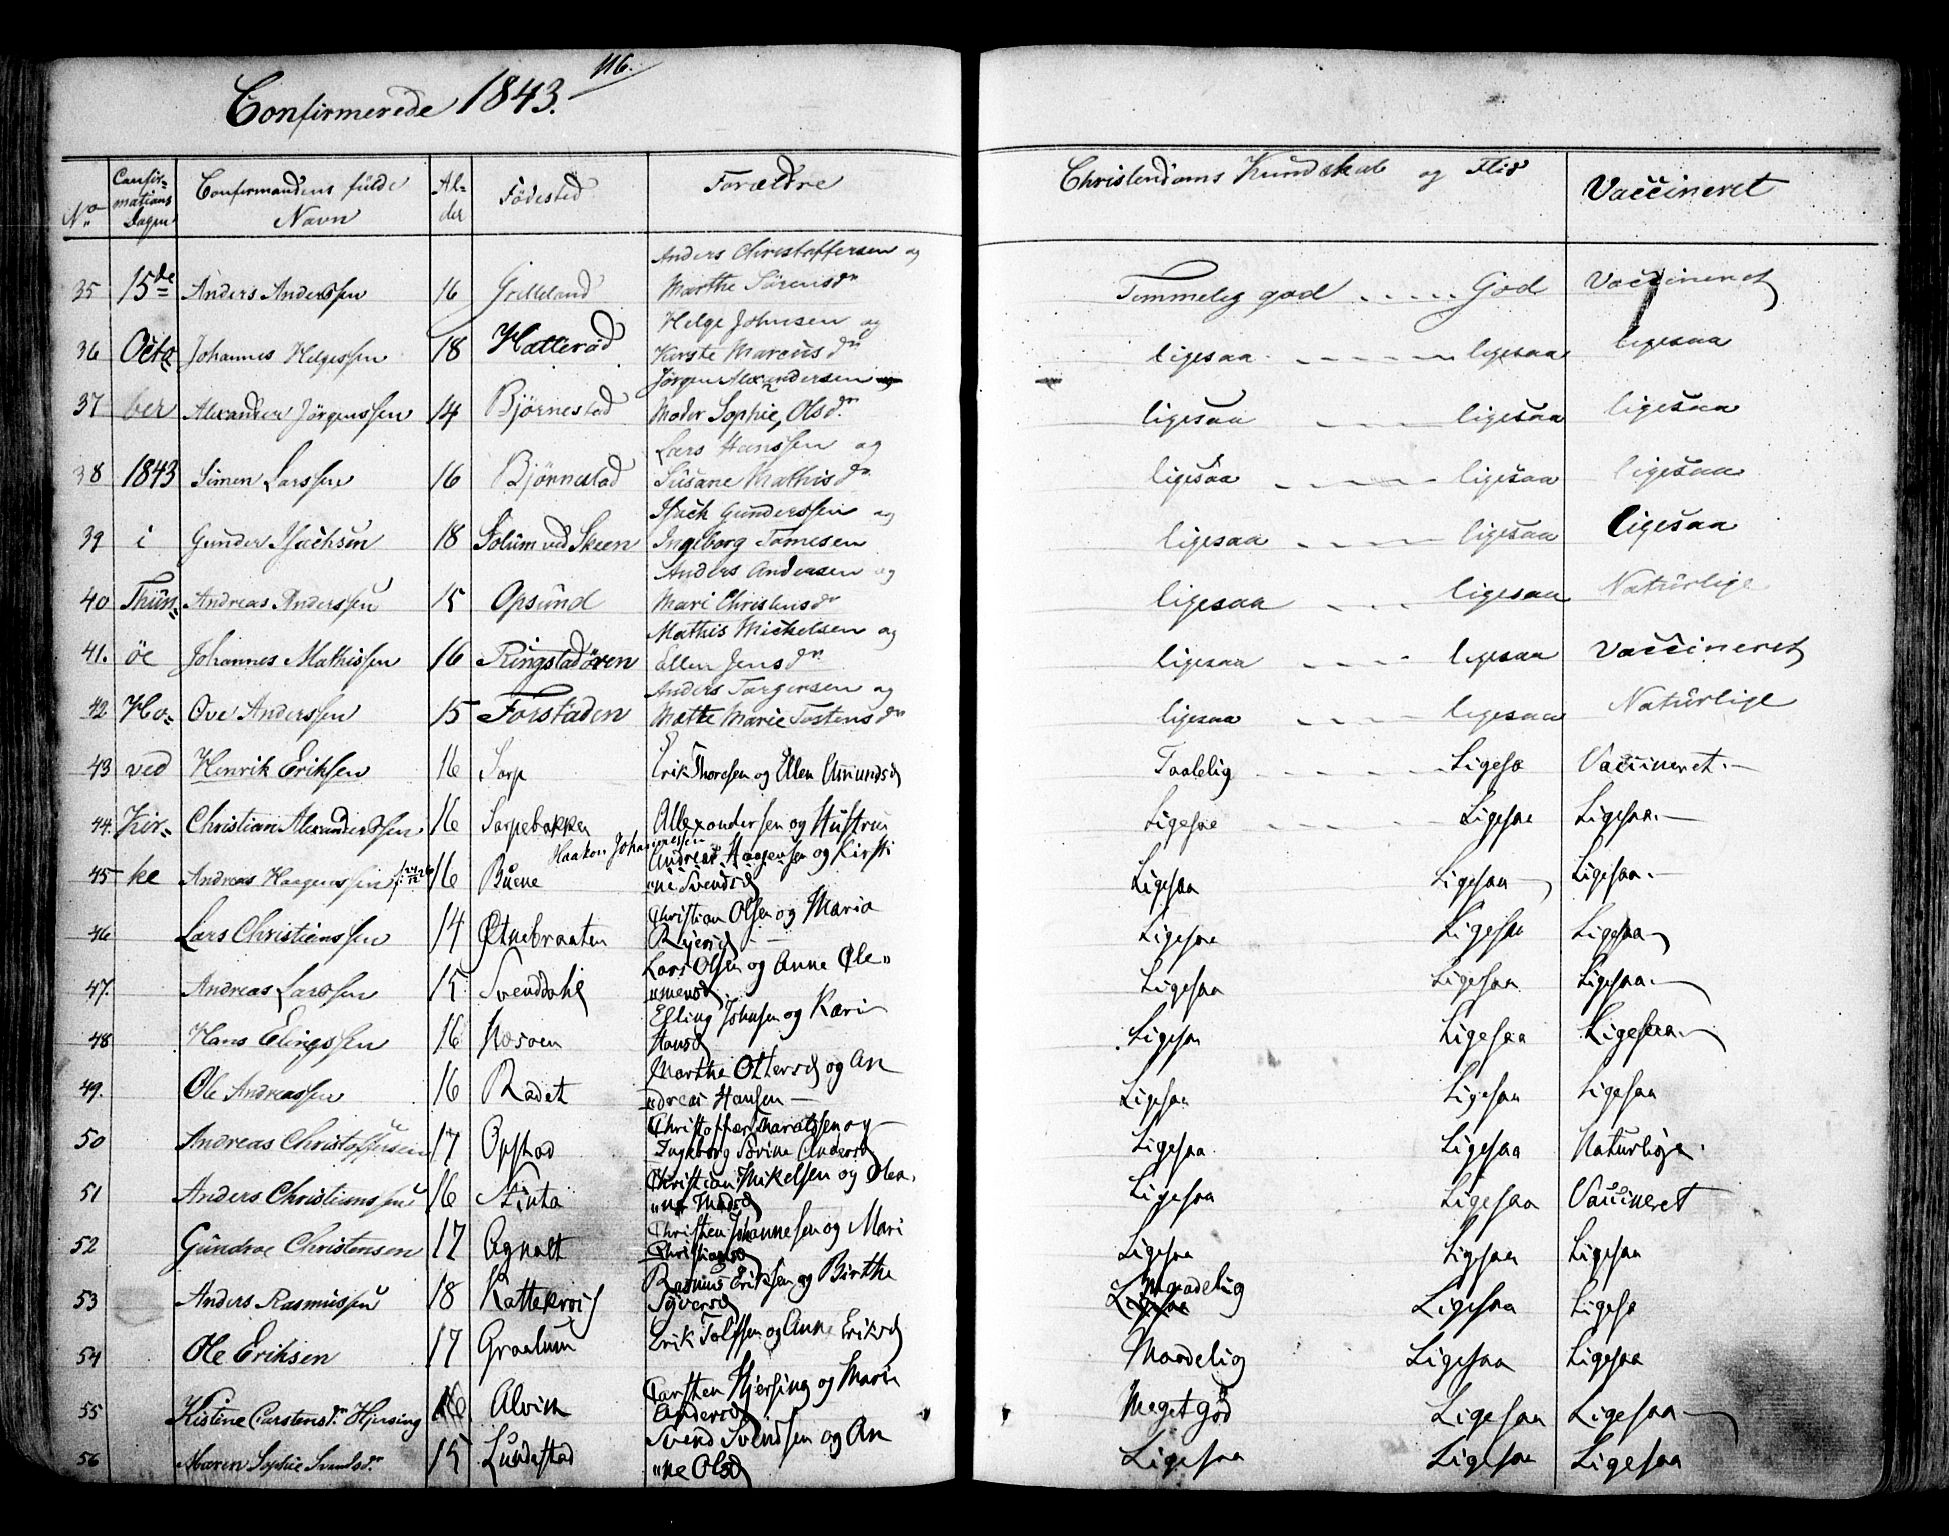 116.
Confirmerede 1843.
No Confirmations Dagen Confirmandens fulde Navn Alder Fødested Forældre Christendoms Kundskab og Flid Vaccineret
Anders Christoffersen og
35 15de Anders Anderssen 16 Grilleland Marthe Sørensdr Temmelig god God Vaccineret
Helge Johnsen og
36 Octo= Johannes Helgessen 18 Hatterød Karste Marcusdr ligesaa ligesaa ligesaa
Jørgen Alexandersen
37 ber Alexander Jørgenssen 14 Bjørnestad Moder Sophie Olsdr ligesaa ligesaa ligesaa
Lars Hanssen og
38 1843 Simen Larssen 16 Bjørnestad Susane Mathisdr ligesaa ligesaa ligesaa
Isach Gunderssen og
39 i Gunder Isachsen 18 Solum ved Skeen Ingeborg Tomesen ligesaa ligesaa ligesaa
Anders Andersen og
40 Thun= Andreas Anderssen 15 Opsund Mari Christensdr ligesaa ligesaa Naturlige
Mathis Mickelsen og
41. öe Johannes Mathissen 16 Ringstadøren Ellen Jensdr ligesaa ligesaa Vaccineret
Anders Torgersen og
42 Ho= Ove Anderssen 15 Forstaden Mætte Marie Tostensdr ligesaa ligesaa Naturlige
43 ved Henrik Eriksen 16 Sarp Erik Thoresen og Ellen Amundsd Taalelig Ligesa Vaccineret.
44. Kir= Christian Alexanderssen 16 Sarpebakken Allexandersen og Hustrue Ligesaa Ligesaa Ligesaa.
Haakon Johannessen
45 ke Andreas Haagenssen 16 Buene Andreas Haagensen og Kirsti
"ne Svendsd Ligesaa Ligesaa Ligesaa.
46 Lars Christianssen 14 Østnebraaten Christian Olsen og Maria
Rejersd Ligesaa Ligesaa Ligesaa
47. Andreas Larssen 15 Svenddahl Lars Olsen og Anne Cle"
"mensd Ligesaa Ligesaa Ligesaa.
48 Hans Elingssen 16 Næsøen Elling Johnsen og Kari
Hansd Ligesaa Ligesaa Ligesaa
49. Ole Andreassen 16 Rødet Marthe Ottersd og An
"dreas Hansen Ligesaa Ligesaa Ligesaa
50 Andreas Christoffersen 17 Opstad Christoffer Haraldssen og
Ingeborg Sovine Andersd Ligesaa Ligesaa Naturlige.
51 Anders Christianssen 16 Stinta Christian Mikelsen og Olea
"ne Madsd Ligesaa Ligesaa Vaccineret
52 Gundroe Christensen 17 Agnalt Christen Johannesen og Mari
Christiansd Ligesaa Ligesaa Ligesaa
53 Anders Rasmussen 18 Kattekrois Rasmus Eriksen og Birthe
Syversd Maadelig Ligesaa Ligesa
54 Ole Eriksen 17 Graalum Erik Tolfsen og Anne Eriksd Maadelig Ligesaa Ligesaa
55 Kistine Carstensdr Hjersing 16 Alvim Carsten Hjersing og Marie
Andersd Meget god Ligesaa Ligesaa
56 Maren Sophie Svendsdr 15 Lundestad Svend Svendsen og An
"ne Olsd Ligesaa Ligesaa Ligesaa